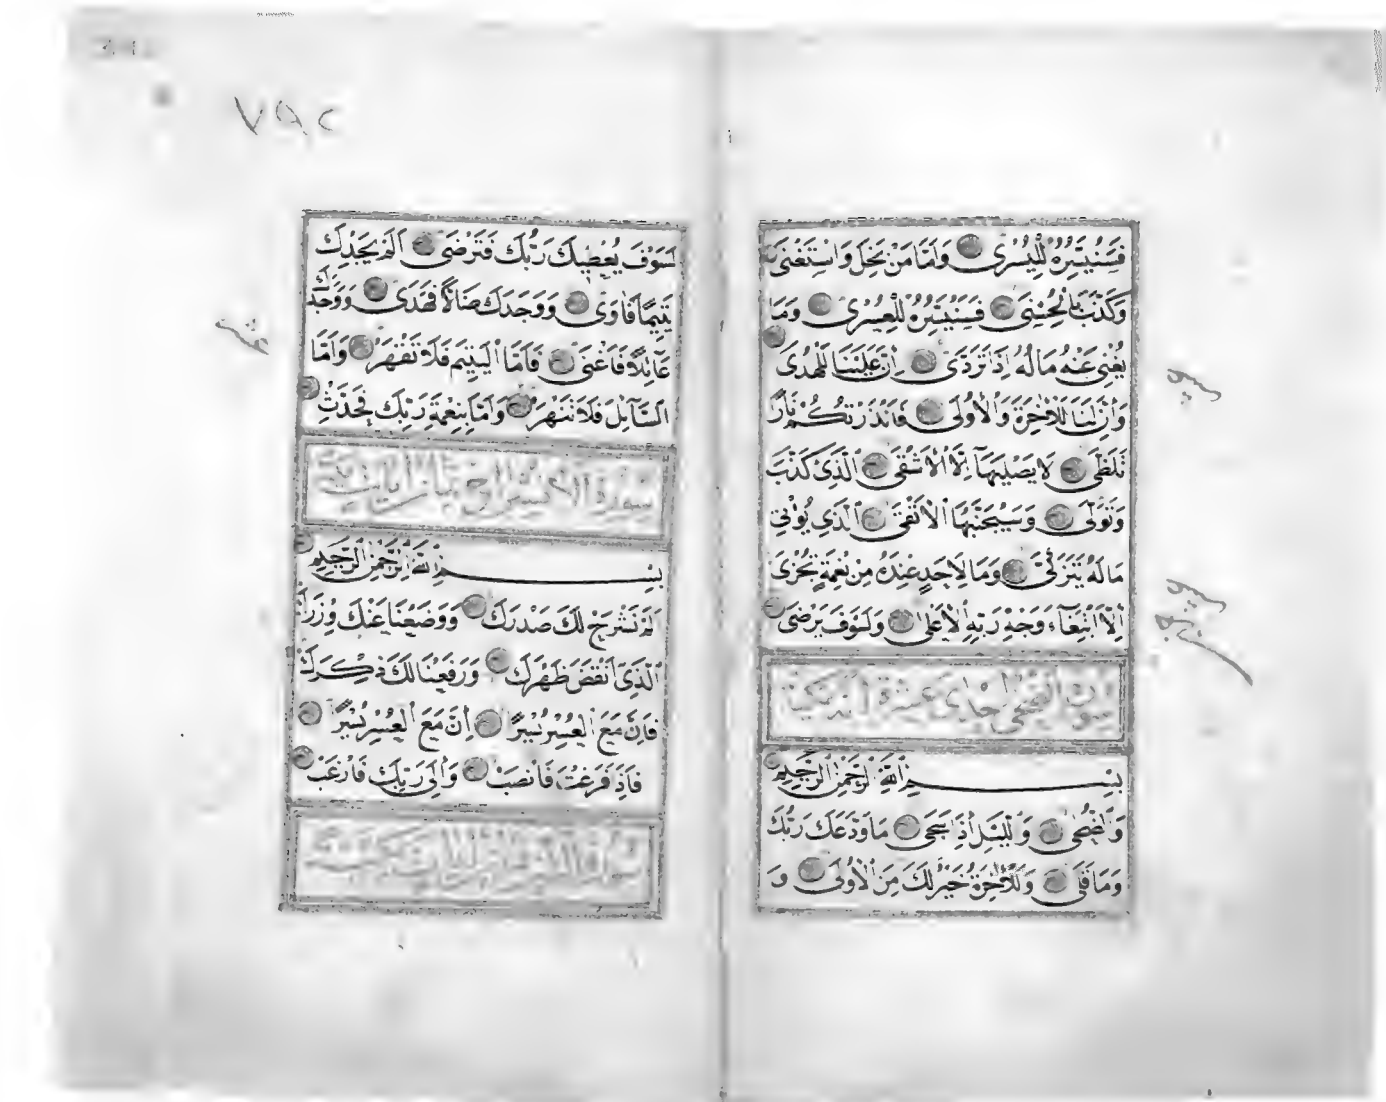 فَسَنُيَسِّرُهُ لِلْيُسْرَى وَاَمَّا مَنْ بَخِلَ وَاسْتَغْنَى
وَكَذَّبَ بِالْحُسْنَى فَسَنُيَسِّرُهُ لِلْعُسْرَى وَمَا
يُغْنِى عَنْهُ مَالُهُ اِذَا تَرَدَّى اِنَّ عَلَيْنَا لَلْهُدَى
وَاِنَّ لَنَا لَلْاٰخِرَةَ وَالْاُولَى فَاَنْذَرْتُكُمْ نَارًا
تَلَظَّى لَا يَصْلٰيهَا اِلَّا الْاَشْقَى اَلَّذِى كَذَّبَ
وَتَوَلَّى وَسَيُجَنَّبُهَا الْاَتْقَى اَلَّذِى يُؤْتِى
مَالَهُ يَتَزَكَّى وَمَا لِاَحَدٍ عِنْدَهُ مِنْ نِعْمَةٍ تُجْزَى
اِلَّا ابْتِغَآءَ وَجْهِ رَبِّهِ الْاَعْلَى وَلَسَوْفَ يَرْضَى
سورة الضحى احدى عشرة اية مكية
بِسْمِ اللّٰهِ الرَّحْمٰنِ الرَّحِيمِ
وَالضُّحَى وَالَّيْلِ اِذَا سَجَى مَا وَدَّعَكَ رَبُّكَ
وَمَا قَلَى وَلَلْاٰخِرَةُ خَيْرٌ لَكَ مِنَ الْاُولَى وَ
٧٩٥
لَسَوْفَ يُعْطِيكَ رَبُّكَ فَتَرْضَى اَلَمْ يَجِدْكَ
يَتِيمًا فَاٰوَى وَوَجَدَكَ ضَالًّا فَهَدَى وَوَجَدَكَ
عَآئِلًا فَاَغْنَى فَاَمَّا الْيَتِيمَ فَلَا تَقْهَرْ وَاَمَّا
السَّآئِلَ فَلَا تَنْهَرْ وَاَمَّا بِنِعْمَةِ رَبِّكَ فَحَدِّثْ
سورة الانشراح ثمان ايات
بِسْمِ اللّٰهِ الرَّحْمٰنِ الرَّحِيمِ
اَلَمْ نَشْرَحْ لَكَ صَدْرَكَ وَوَضَعْنَا عَنْكَ وِزْرَكَ
اَلَّذِى اَنْقَضَ ظَهْرَكَ وَرَفَعْنَا لَكَ ذِكْرَكَ
فَاِنَّ مَعَ الْعُسْرِ يُسْرًا اِنَّ مَعَ الْعُسْرِ يُسْرًا
فَاِذَا فَرَغْتَ فَانْصَبْ وَاِلَى رَبِّكَ فَارْغَبْ
سورة التين ثمان ايات